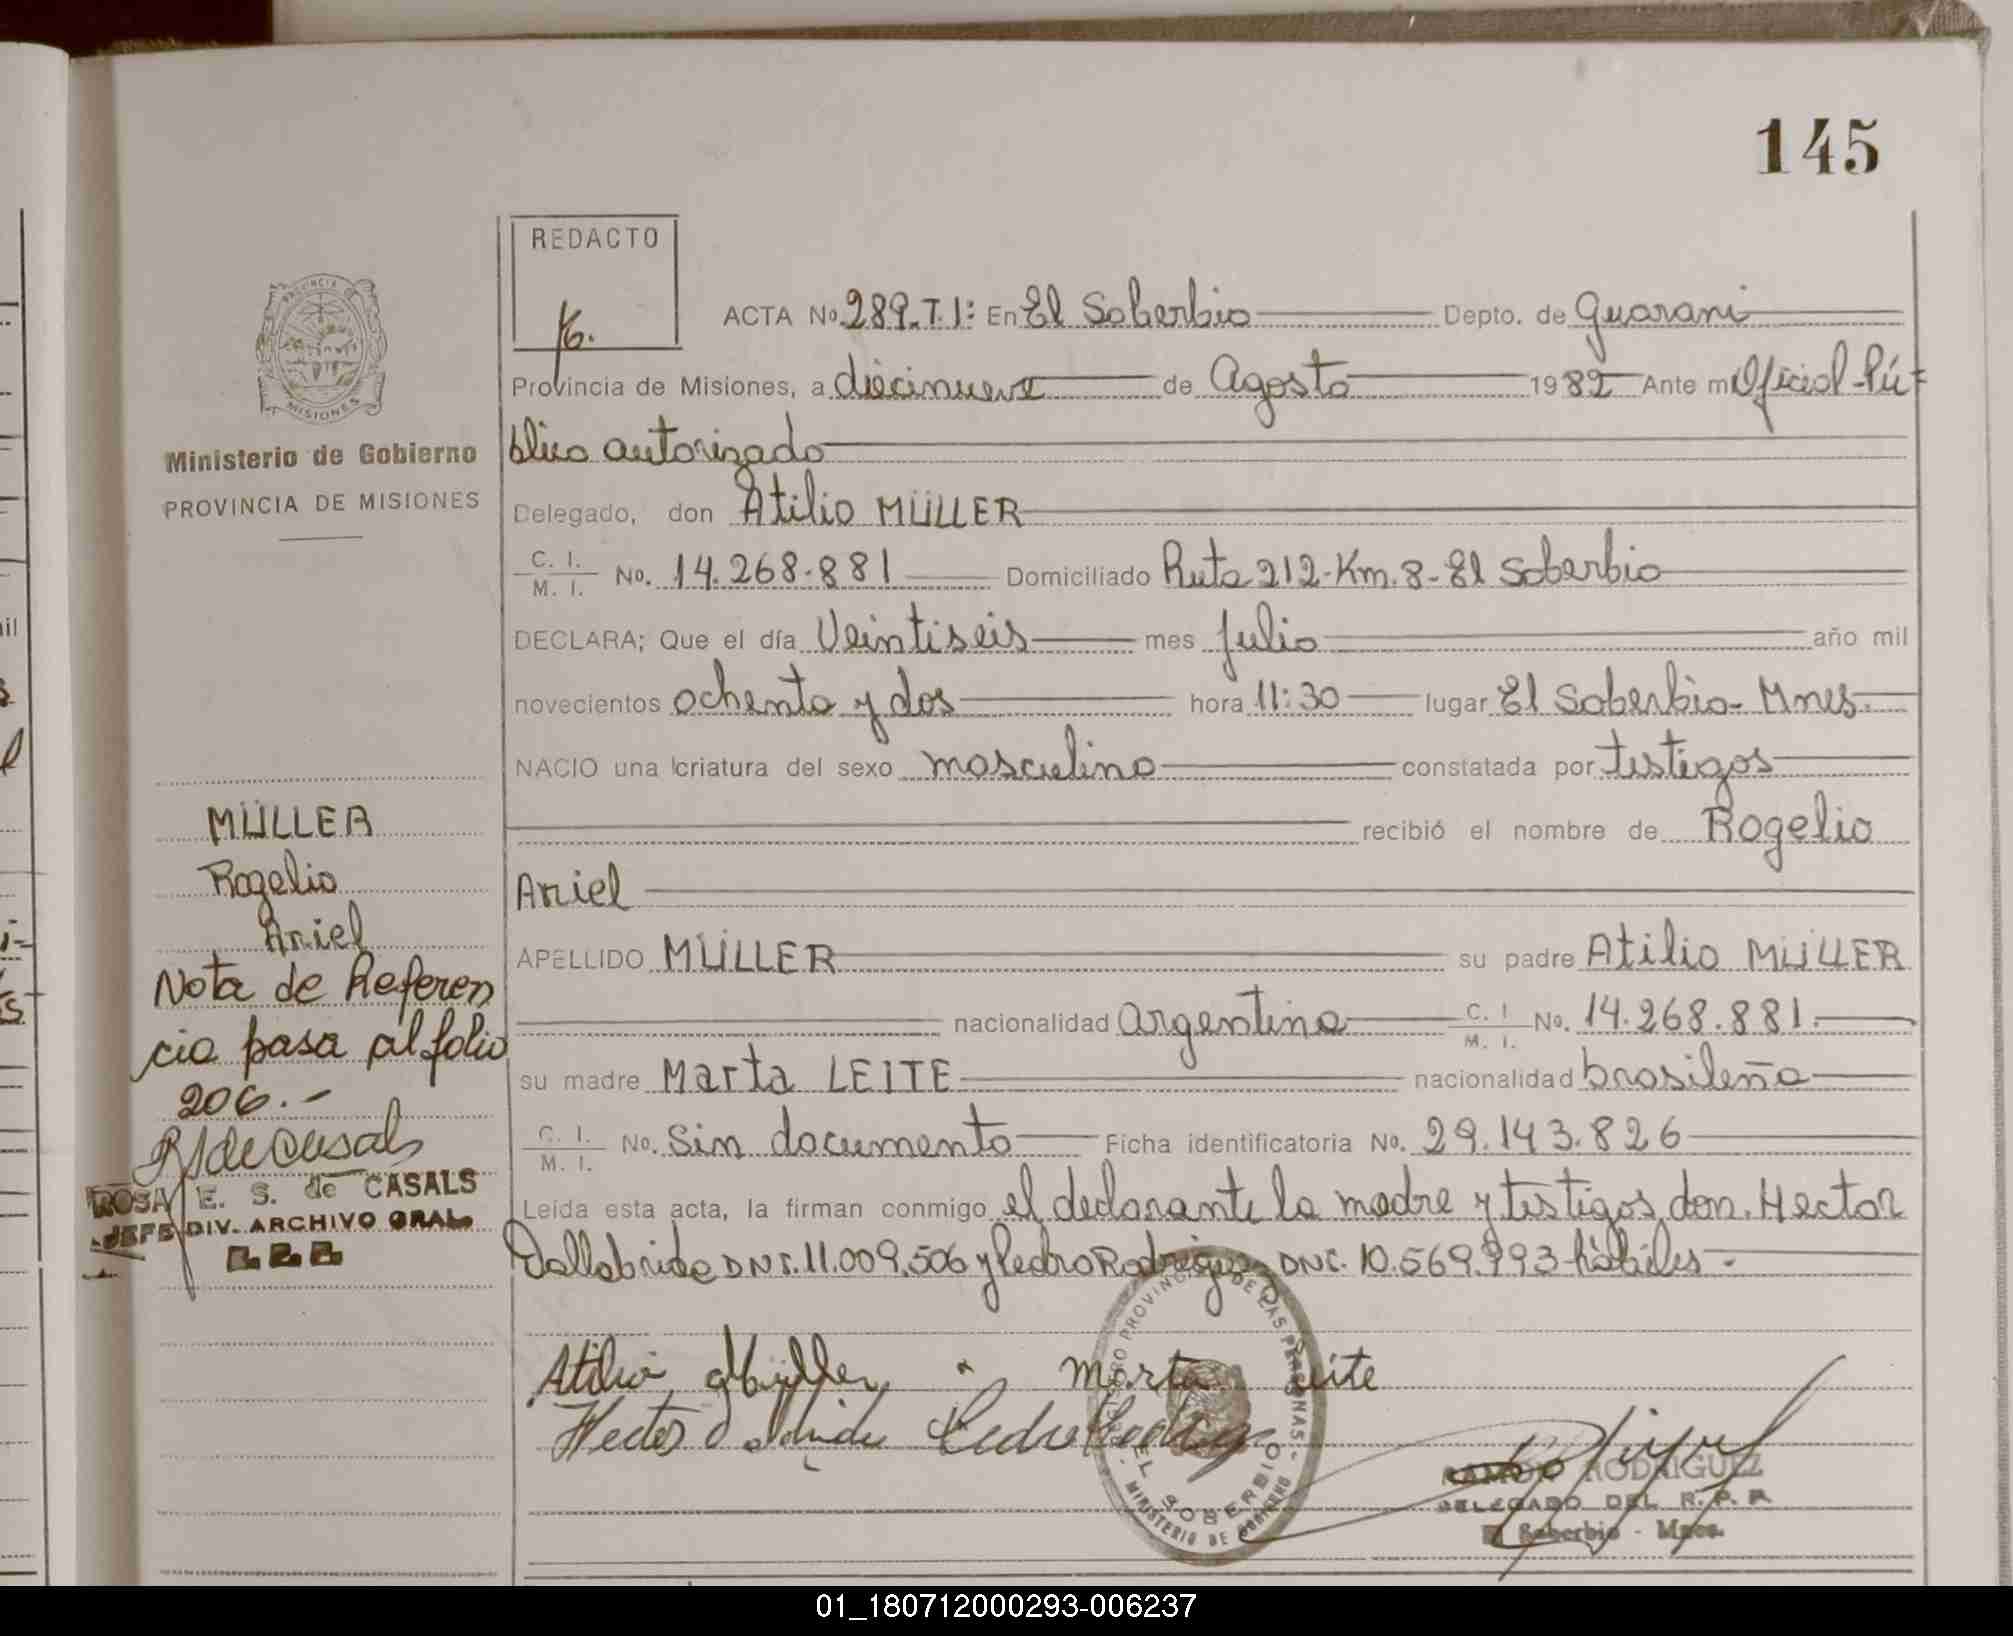 145
REDACTO
ACTA No. 289.T.1: En El Soberbio Depto. de Guarani
Provincia de Misiones, a diecinueve de Agosto 1982 Ante mi Oficial Pú-
blico autorizado
Delegado, don Atilio MÜLLER
C. I. M. I. No. 14.268.881 Domiciliado Ruta 212-Km.8-El Soberbio
DECLARA; Que el día Veintiseis mes Julio año mil
novecientos ochenta y dos hora 11:30 lugar El Soberbio- Mnes.
NACIO una criatura del sexo masculino constatada por testigos
recibió el nombre de Rogelio
Ariel
APELLIDO MÜLLER su padre Atilio MÜLLER
nacionalidad argentina C. I. M. I. No. 14.268.881.
su madre Marta LEITE nacionalidad brasileña
C. I. M. I. No. Sin documento Ficha identificatoria No. 29.143.826
Leída esta acta, la firman conmigo el declarante la madre y testigos don. Hector
Dallabrida DNI. 11.009.506 y Pedro Rodriguez DNI. 10.569.993 hábiles -
Atilio Müller Marta Leite
Hector Dallabrida Pedro Rodriguez
REGISTRO PROVINCIAL DE LAS PERSONAS
EL SOBERBIO
MINISTERIO DE GOBIERNO
RAMON RODRIGUEZ
DELEGADO DEL R. P. P.
El Soberbio - Mnes.
PROVINCIA DE
MISIONES
Ministerio de Gobierno
PROVINCIA DE MISIONES
MÜLLER
Rogelio
Ariel
Nota de Referen
cia pasa al folio
206.-
ROSA E. S. de CASALS
JEFE DIV. ARCHIVO GRAL.
01_180712000293-006237